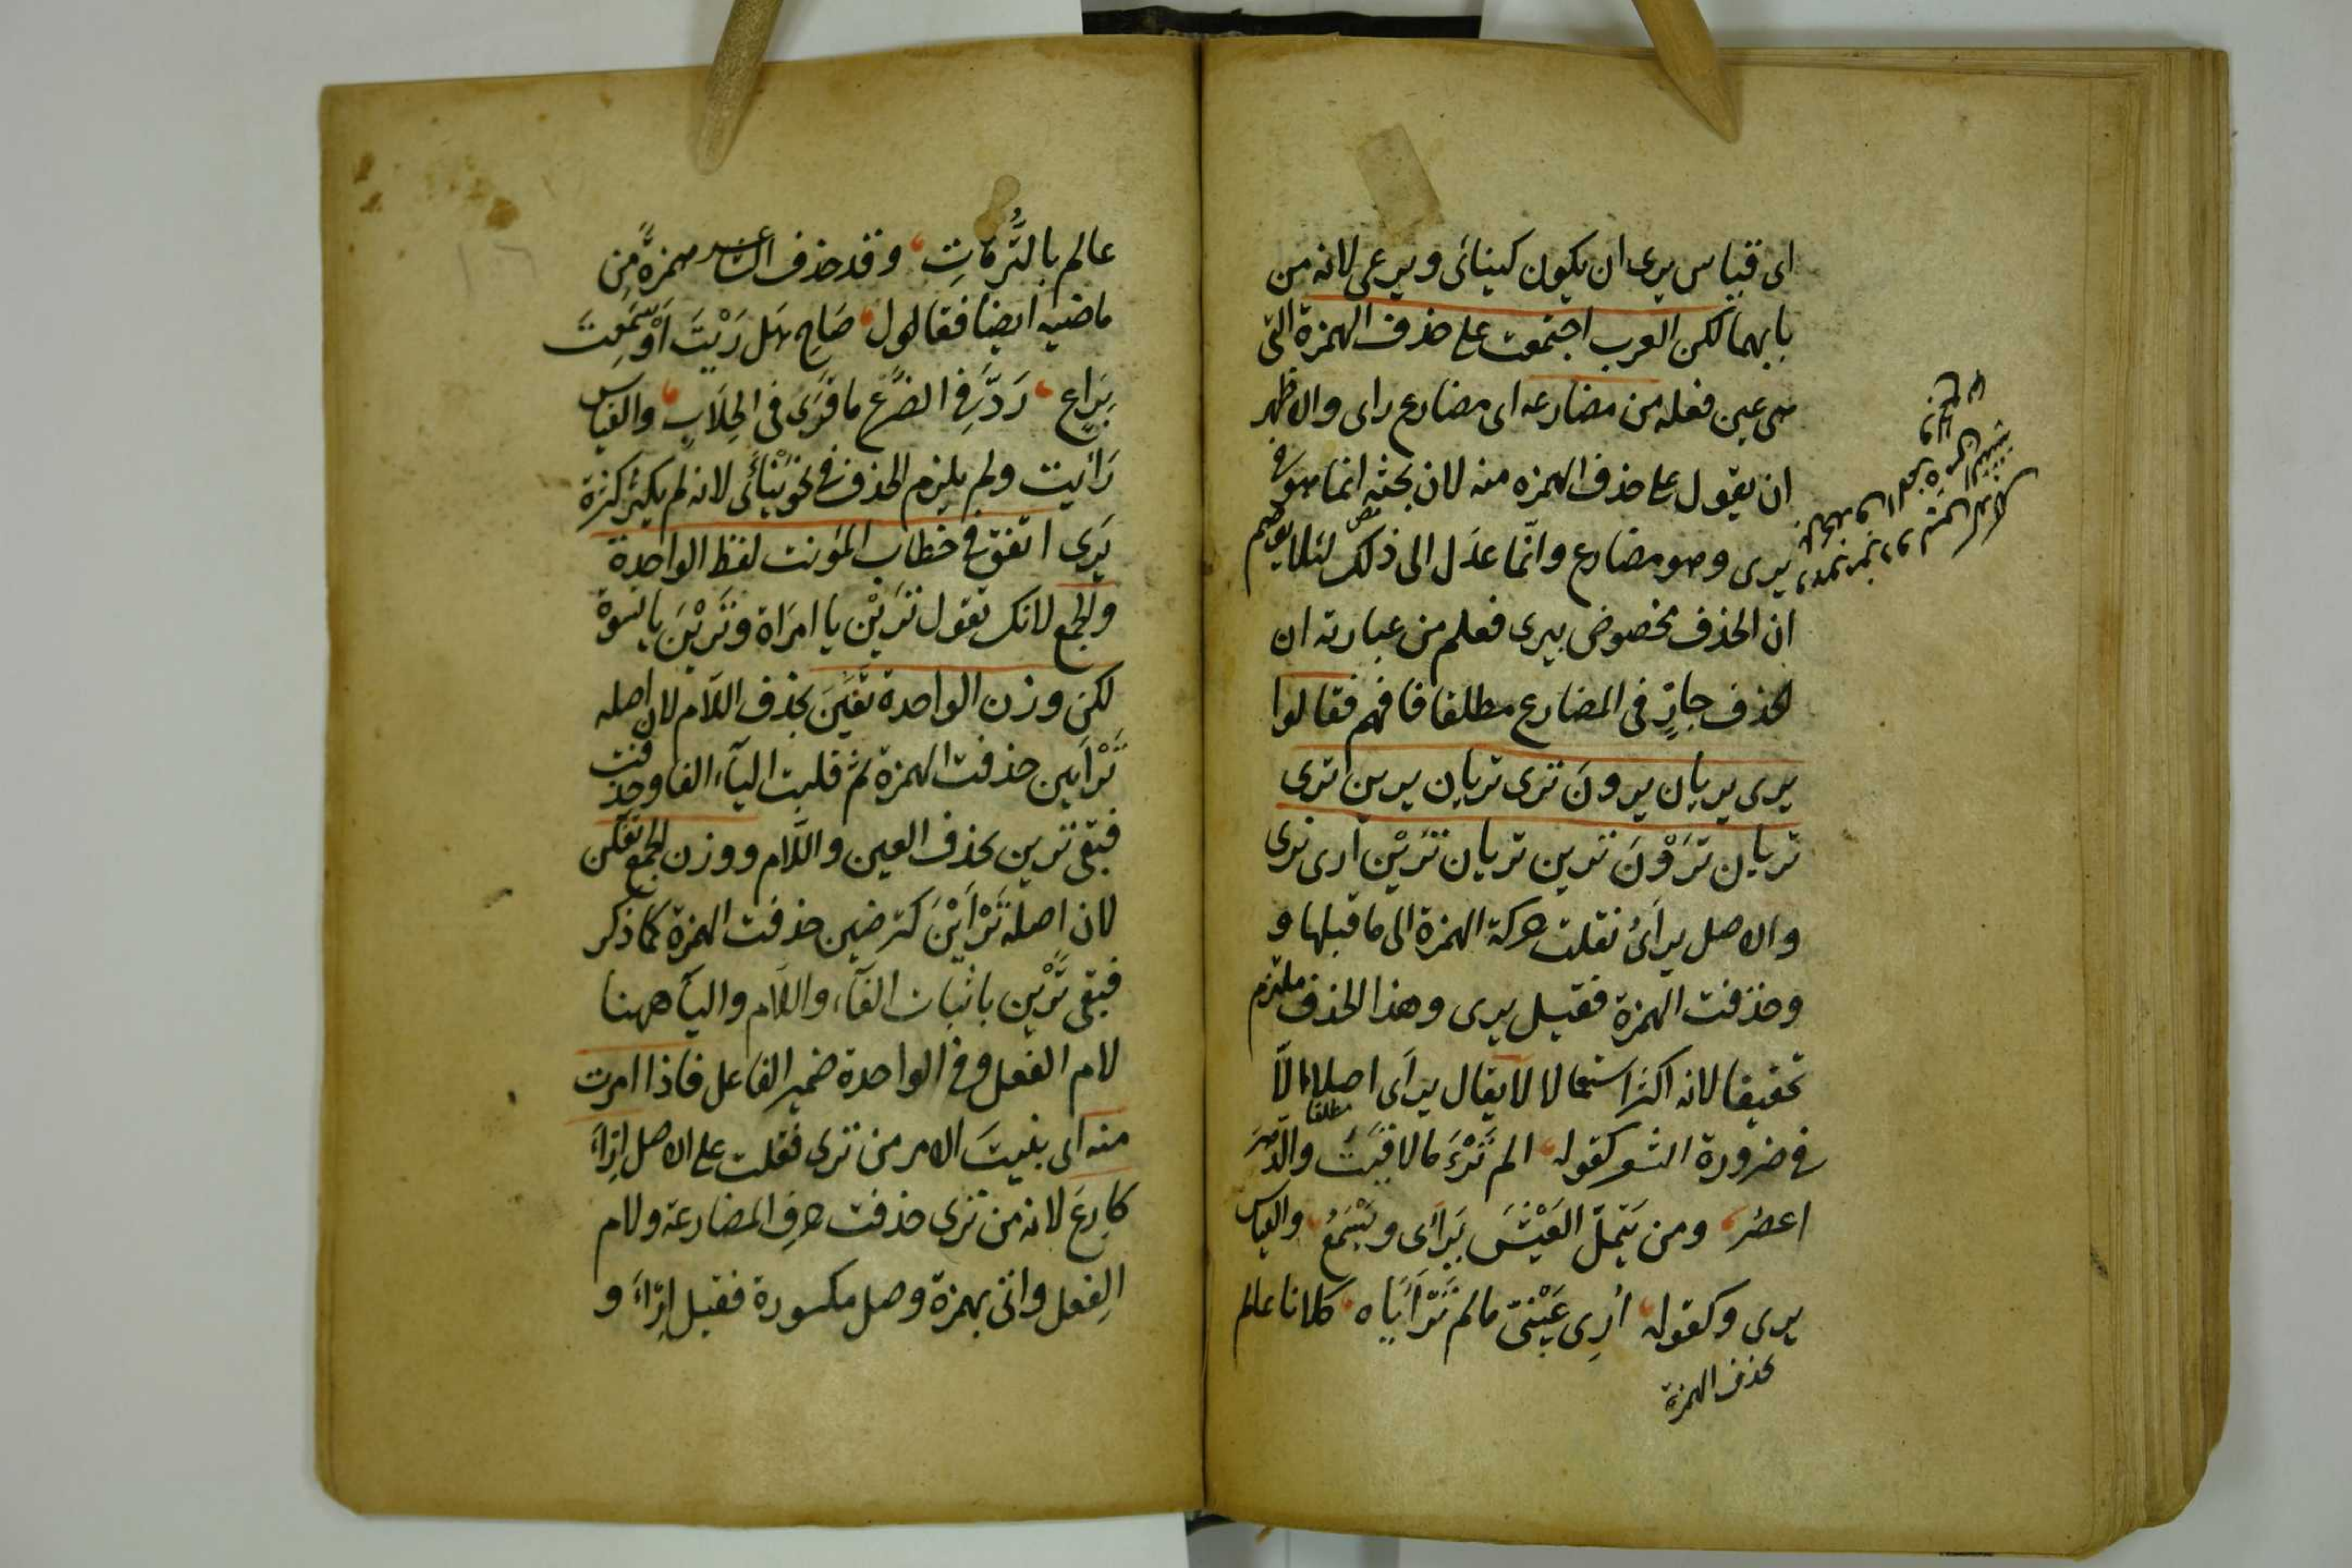 اى قياس يرى ان يكون كينائى ويرعى لانه من
بابهما لكن العرب اجتمعت على حذف الهمزة التى
هى عين فعله من مضارعه اى مضارع راى والاظهر
ان يقول على حذف الهمزه منه لان بحثه انما هو فى
يرى وهو مضارع وانّما عدَل الى ذلك لئلا يتوهم
ان الحذف مخصوص بيرى فعلم من عبارته ان
الحذف جايز فى المضارع مطلقا فافهم فقالوا
يرى يريان يرونَ ترى تريان يرين ترى
تريان تَرَوْنَ ترين تريان تَرَيْن ارى نرى
والاصل يرأىُ نقلت حركة الهمزة الى ما قبلها و
وحذفت الهمزة فقيل يرى وهذا الحذف ملتزم
تخفيفا لانه اكثر استعمالا لا يقال يرأى اصلا الّا
مطلقا
فى ضرورة الشعر كقوله الم تَرْءَ ما لاقَيْتَ والدّهرَ
اعصُر ومن يَتَملَّ العَيْشَ يَرْأَى ويَسْمَعُ والقياس
يرى وكقوله أرِى عَيْنىّ ما لم تَرْأَيَاه كلانا عالم
بحذف الهمزة
عالم بالتُّرَّهَاتِ وقد حذف الشاعر همزةً مِن
ماضيه ايضا فقال صَاحِ هَل رَيْتَ اَوْ سَمِعتَ
بِرَاعٍ رَدَّ فِى الضَّرْعِ ما قَرَى فى الحِلَابِ والقياس
رَأَيت ولم يلزم الحذف فى نحو يَنْأَى لانه لم يكثر كثرة
يَرَى اتفق فى خطاب المؤنث لفظ الواحدة
والجمع لانك تقول تَرَيْن يا امرَاة وتَرَيْنَ يا نسوة
لكن وزن الواحدة تَفَيْنَ بحذف اللّام لان اصله
تَرْأَيين حذفت الهمزة ثم قلبت اليآء الفا وحذفت
فبقى ترين بحذف العين واللّام ووزن الجمع تَفَلْن
لان اصله تَرْأَيْنَ كترضين حذفت الهمزة كما ذكر
فبقى تَرَيْن باثبات الفآء واللّام واليآء ههنا
لام الفعل وفى الواحدة ضمير الفاعل فاذا امرت
منه اى بنيتَ الامر من ترى فقلت على الاصل اِرْأَ
كارْعَ لانه من ترى حذفت حرف المضارعة ولام
الفعل واتى بهمزة وصل مكسورة فقيل اِرْأَ و